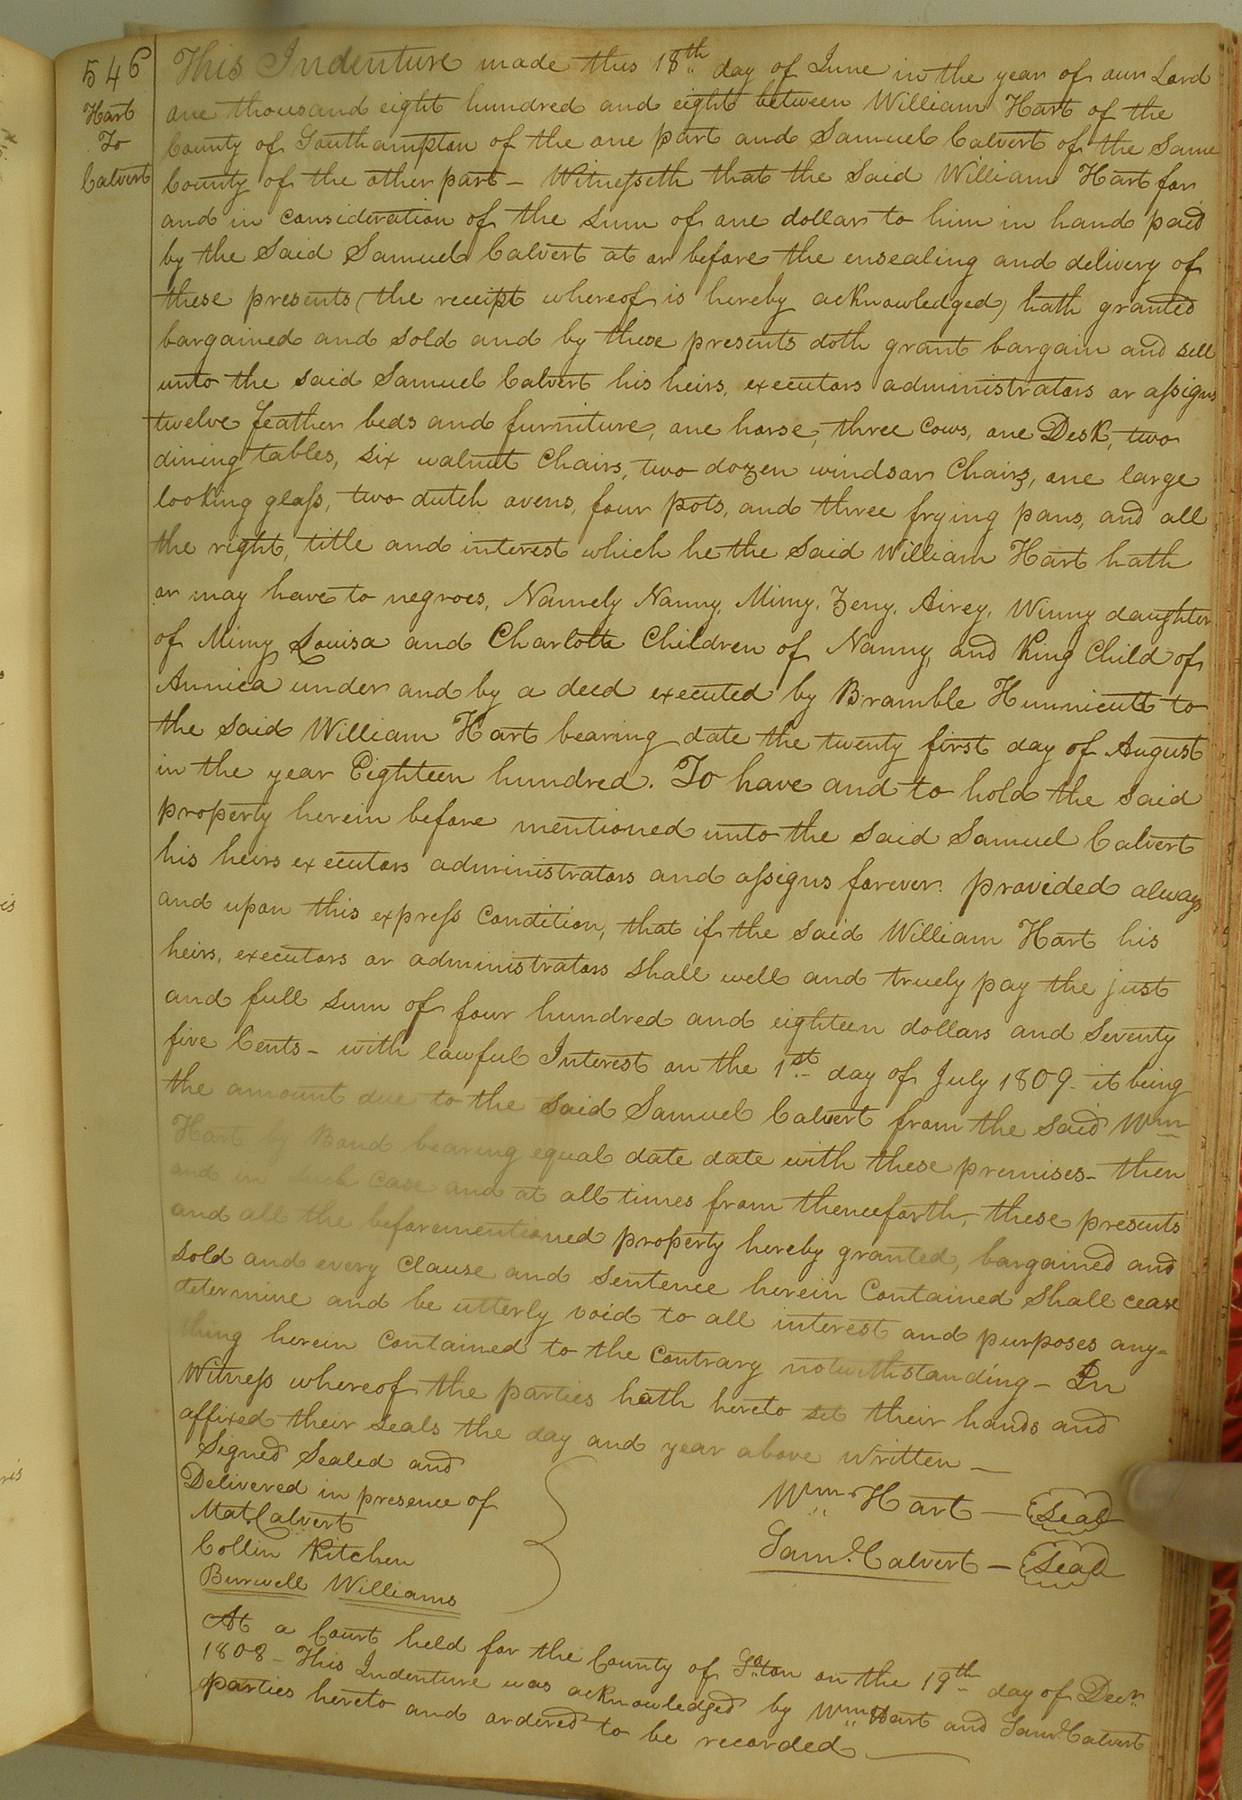 546
Hart
To
Calvert
This Indenture made this 18th day of June in the year of our Lord
one thousand eight hundred and eight between William Hart of the
County of Southampton of the one part and Samuel Calvert of the Same
County of the other part – Witnesseth that the Said William Hart for
and in consideration of the sum of one dollar to him in hand paid
by the Said Samuel Calvert at or before the ensealing and delivery of
these presents (the receipt whereof is hereby acknowledged) hath granted
bargained and sold and by these presents doth grant bargain and sell
unto the said Samuel Calvert his heirs, executors administrators or assigns
twelve feather beds and furniture, one horse, three Cows, one Desk, two
dining tables, six walnut Chairs, two dozen windsor Chairs, one large
looking glass, two dutch ovens, four pots, and three frying pans, and all
the right, title and interest which he the Said William Hart hath
or may have to negroes, Namely Nanny, Mimy, Zeny, Airey, Winny daughter
of Mimy Louisa and Charlotte Children of Nanny, and King Child of
Annica under and by a deed executed by Bramble Hunnicutt to
the said William Hart bearing date the twenty first day of August
in the year Eighteen hundred. To have and to hold the said
property herein before mentioned unto the said Samuel Calvert
his heirs executors administrators and assigns forever. provided always
and upon this express Condition, that if the said William Hart his
heirs, executors or administrators shall well and truely pay the just
and full sum of four hundred and eighteen dollars and Seventy
five Cents – with lawful Interest on the 1st day of July 1809 – it being
the amount due to the Said Samuel Calvert from the said Wm
Hart by Bond bearing equal date date with these premises – then
and in such Case and at all times from thenceforth, these presents
and all the beforementioned property hereby granted, bargained and
sold and every Clause and Sentence herein Contained Shall cease
determine and be utterly void to all interest and purposes any-
thing herein contained to the Contrary notwithstanding – In
Witness whereof the parties hath hereto set their hands and
affixed their seals the day and year above written –
Signed Sealed and
Delivered in presence of
Mat. Calvert
Collin Kitchen
Burwell Williams
Wm. Hart – Seal
Saml. Calvert – Seal
At a Court held for the County of So.ton on the 19th day of Decr.
1808 – This Indenture was acknowledged by Wm Hart and Saml. Calvert
parties hereto and ordered to be recorded